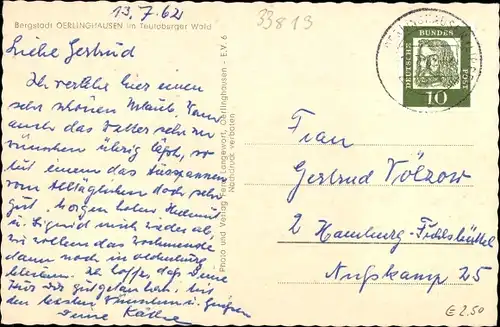 13.7.62
33813
Bergstadt OERLINGHAUSEN im Teutoburger Wald
Liebe Gertrud
Ich verlebe hier einen
sehr schönen Urlaub. Wenn
auch das Wetter sehr zu
wünschen übrig läßt, so
tut einem das Ausspannen
vom Alltäglichen doch sehr
gut. Morgen holen Helmut
u. Sigrid mich wieder ab,
wir wollen das Wochenende
dann noch in Oldenburg
bleiben. Ich hoffe, daß Deine
Kur Dir gut getan hat. Mit
den besten Wünschen u. Grüßen
Deine Käthe
Photo und Verlag Ferd. Langewort, Oerlinghausen - E.V. 6
Nachdruck verboten
OERLINGHAUSEN
DEUTSCHE
BUNDES
POST
10
Frau
Gertrud Völzow
2 Hamburg-Fuhlsbüttel
Nußkamp 25
€ 2.50